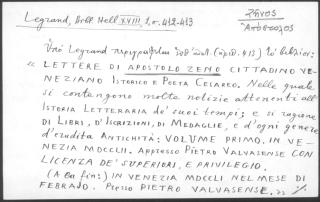 Legrand, Bibl. Hell XVIII, 1, σ. 412-413
Ζῆνος
Ἀπόστολος
Ὑπὸ Legrand περιγράφεται (ἀριθ. 413) τὸ βιβλίον:
« LETTERE DI APOSTOLO ZENO CITTADINO VE-
NEZIANO ISTORICO E POETA CESAREO. Nelle quale
si contengono molte notizie attenenti all'
ISTORIA LETTERARIA de' suoi tempi; e si ragiona
DI LIBRI, D'ISCRIZIONI, DI MEDAGLIE, e d'ogni genere
d'erudita ANTICHITÀ: VOLUME PRIMO. IN VE-
NEZIA MDCCLII. APPRESSO PIETRO VALVASENSE CON
LICENZA DE' SUPERIORI, E PRIVILEGIO.
(A la fin:) IN VENEZIA MDCCLI NEL MESE DI
FEBRAJO. Presso PIETRO VALVASENSE. »